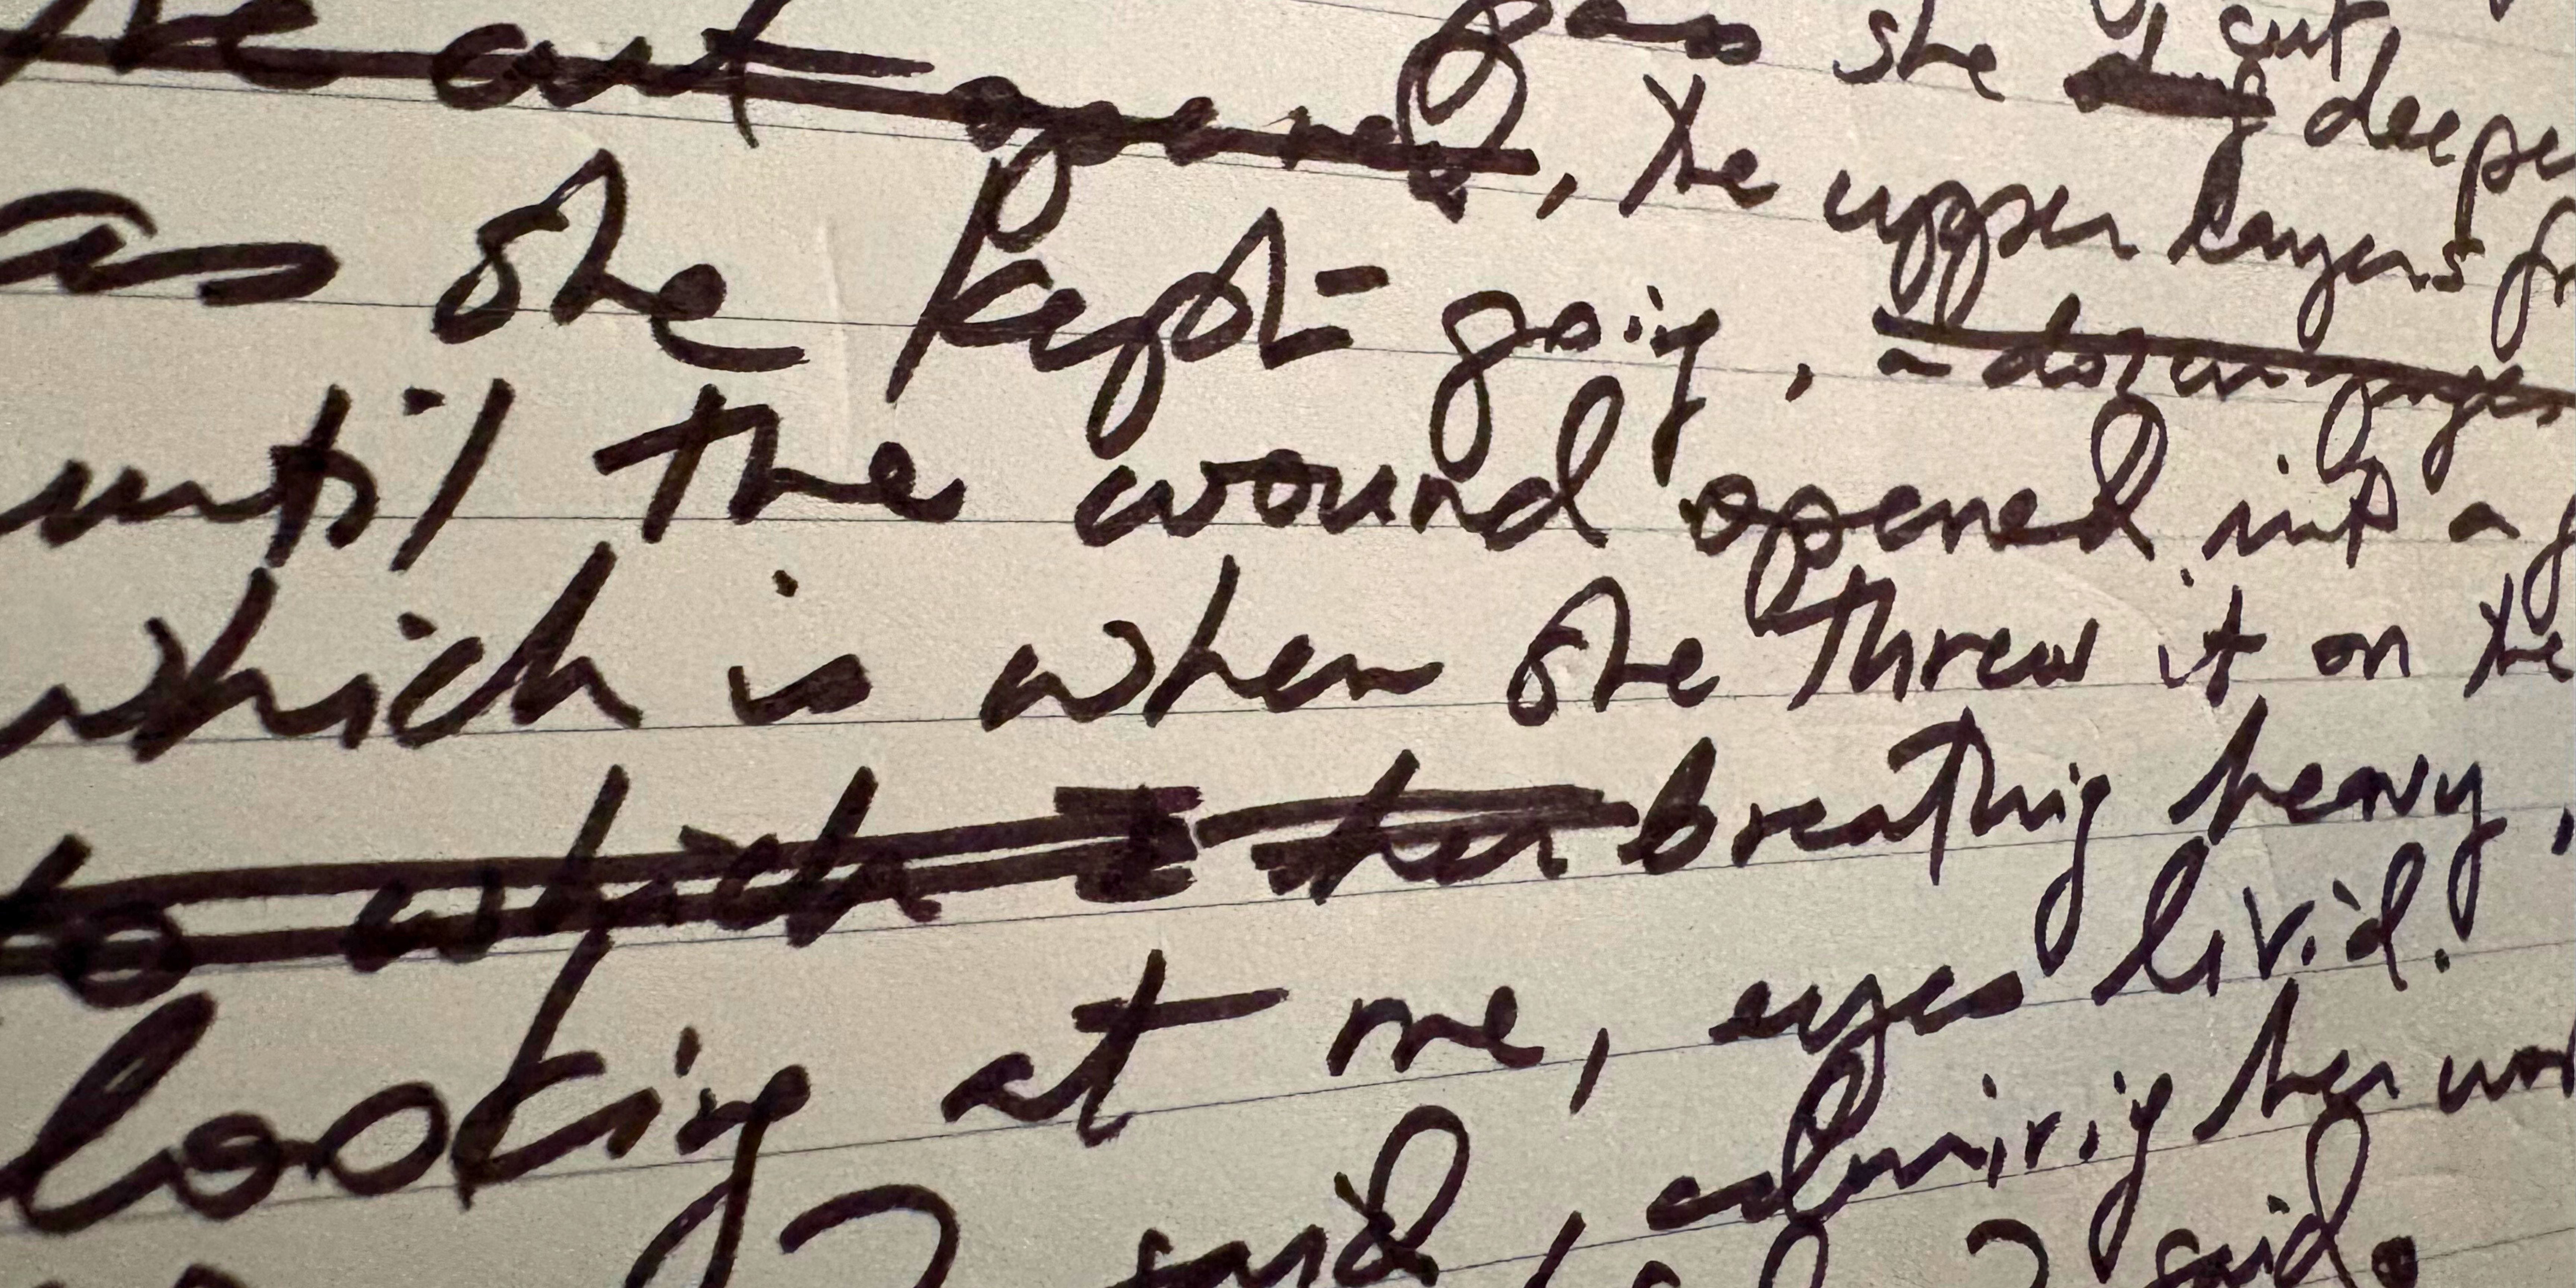 pass she cut, deeper
the cut opened, the upper layers
as she kept going,
until the wound opened into a
which is when she threw it on the
to which her breathing heavy,
looking at me, eyes livid.
said, admiring her
said.